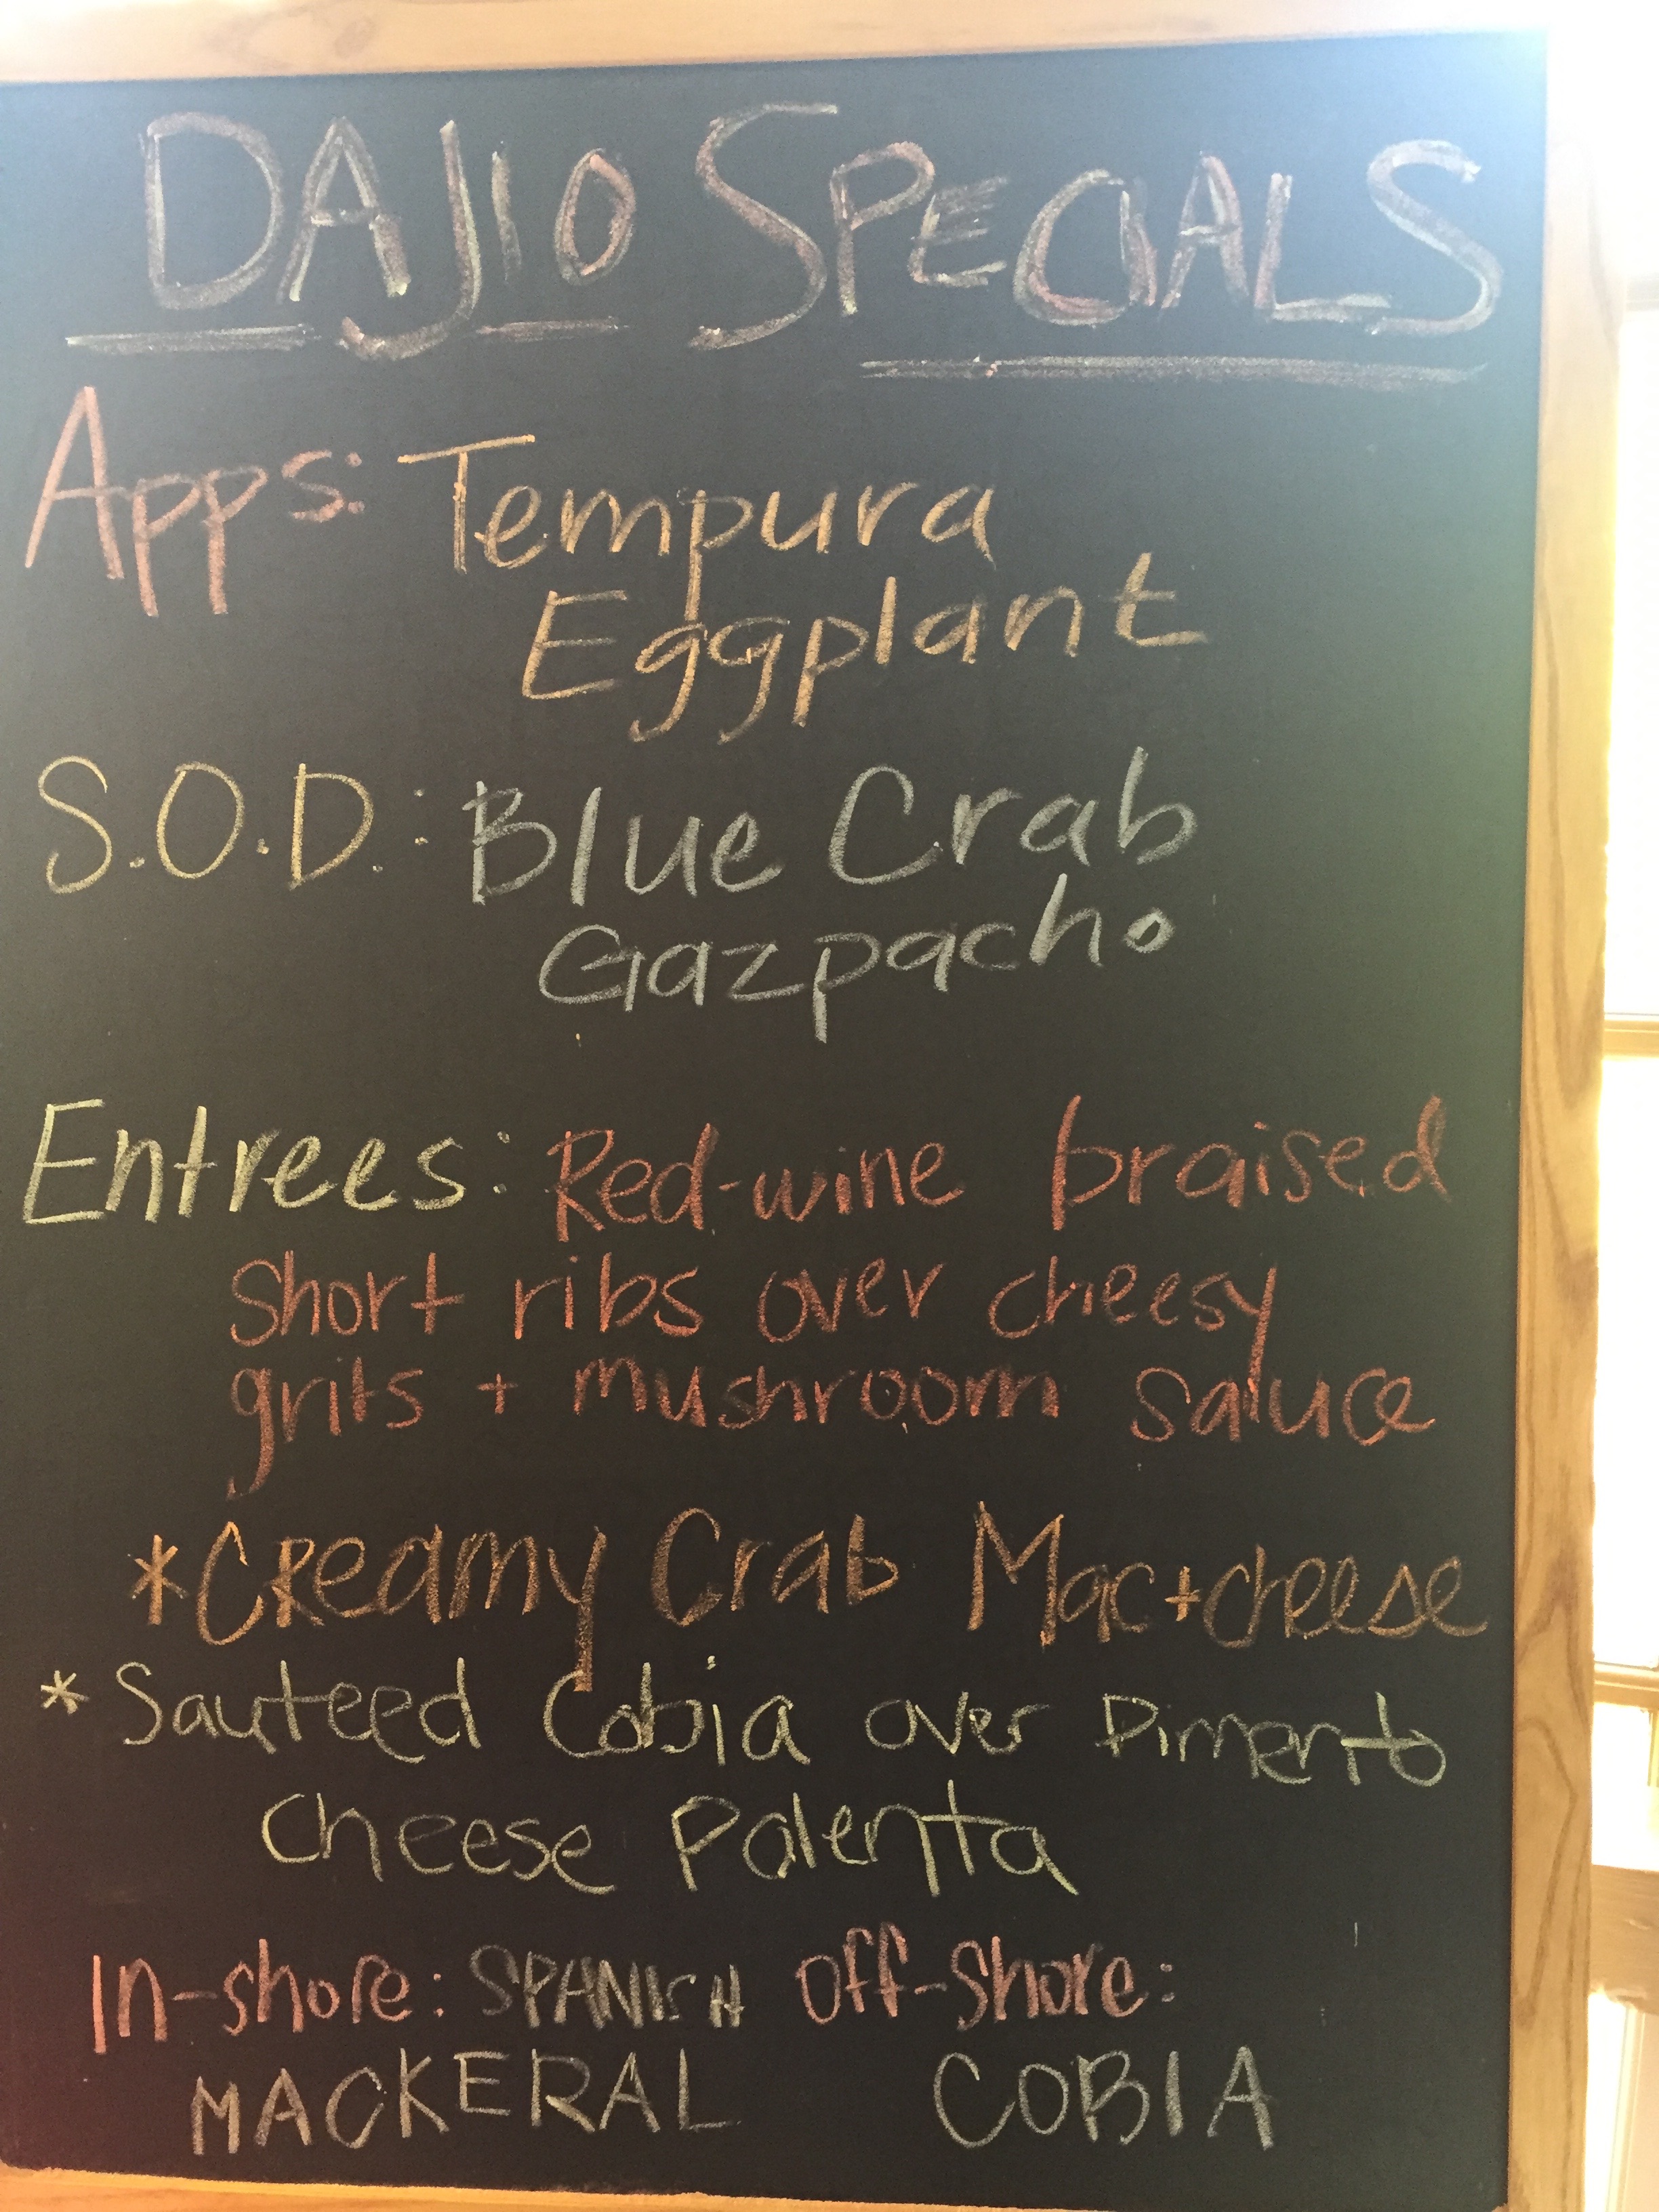 DAJIO SPECIALS
Apps: Tempura
Eggplant
S.O.D.: Blue Crab
Gazpacho
Entrees: Red-wine braised
short ribs over cheesy
grits + mushroom sauce
*Creamy Crab Mac+cheese
*Sauteed Cobia over Pimento
Cheese Polenta
In-shore: SPANISH Off-Shore:
MACKERAL COBIA